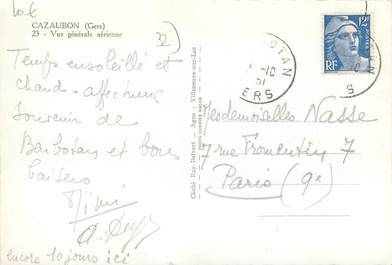 10€
CAZAUBON (Gers)
23 - Vue générale aérienne
32
Temps ensoleillé et
chaud - affectueux
Souvenir de
Barbotan et bons
baisers
Mimi
encore 10 jours ici
Cliché Ray-Delvert - Agen - Villeneuve-sur-Lot
OTAN
-10
51
GERS
12F
RF
Mesdemoiselles Nasse
7 rue Fromentin 7
Paris (9e)